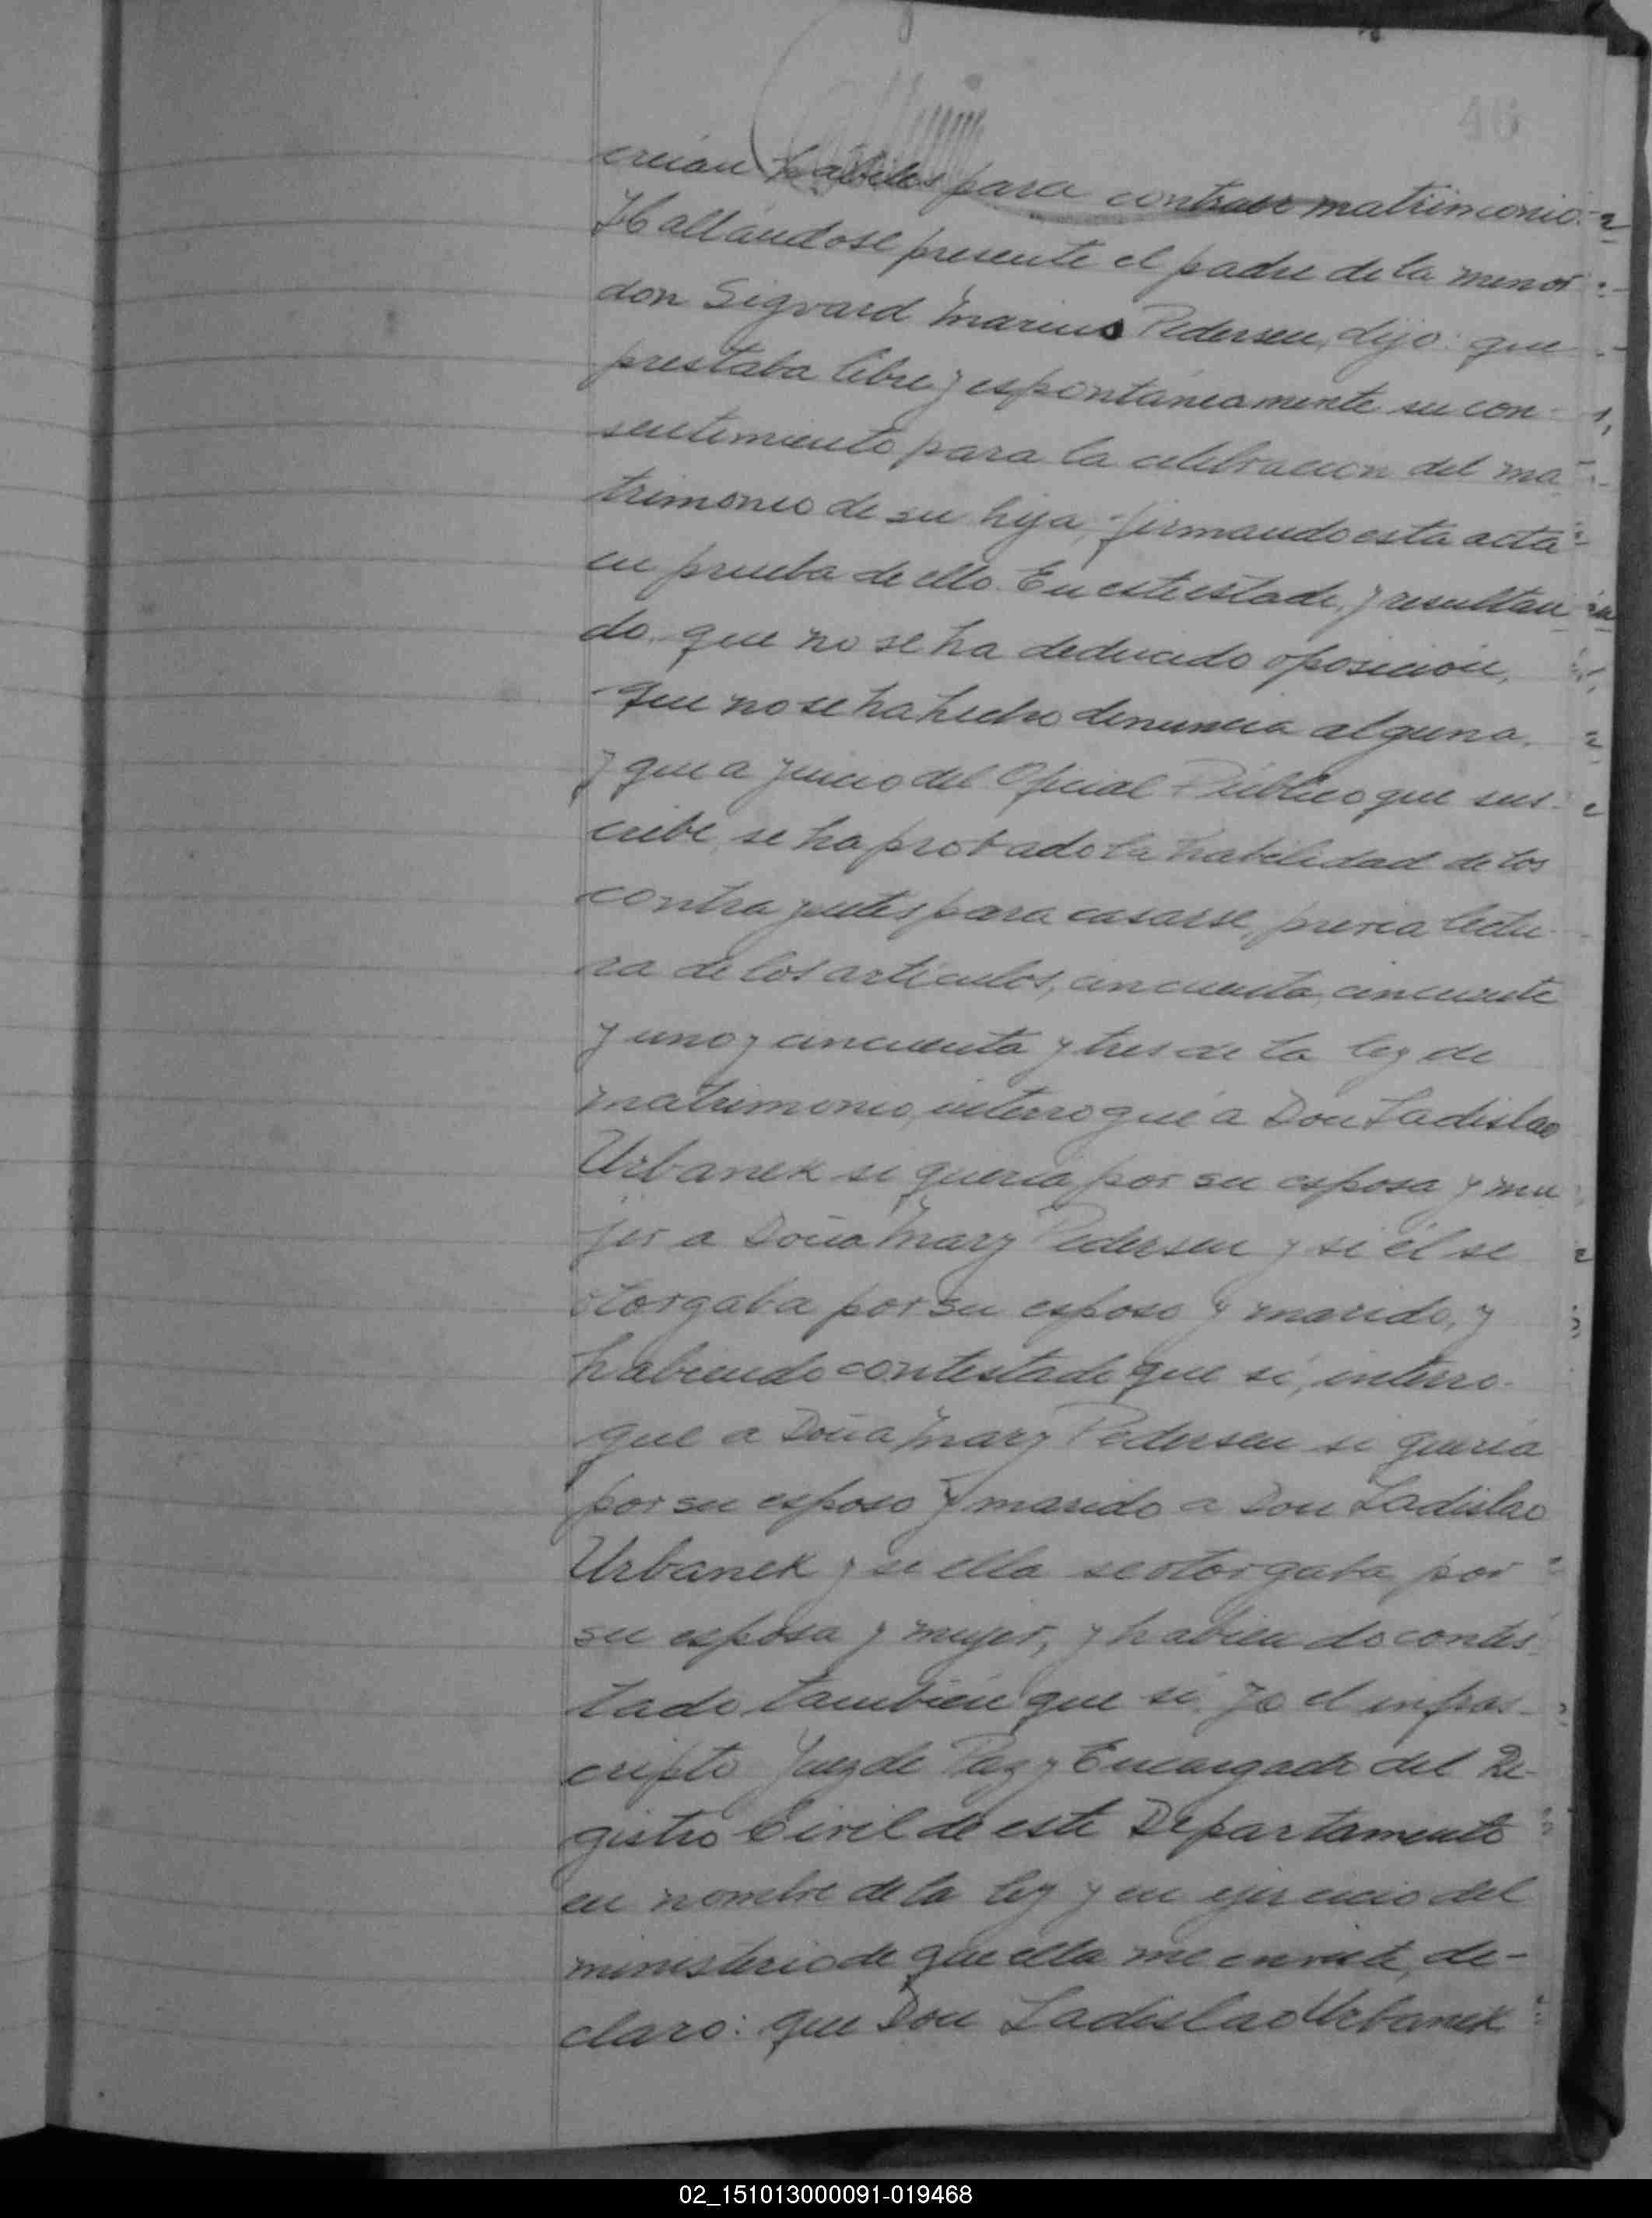 46
creían habiles para contraer matrimonio.
Hallándose presente el padre de la menor
don Sigvard Marius Pedersen, dijo: que
prestaba libre y espontáneamente su con-
sentimiento para la celebración del ma-
trimonio de su hija, firmando esta acta
en prueba de ello. En este estado, y resultan
do, que no se ha deducido oposición,
que no se ha hecho denuncia alguna,
y que a juicio del Oficial Público que sus-
cribe, se ha probado la habilidad de los
contrayentes para casarse, previa lectu-
ra de los artículos, cincuenta, cincuenta
y uno y cincuenta y tres de la ley de
matrimonio, interrogué a Don Ladislao
Urbanek si quería por su esposa y mu
jer a Doña Mary Pedersen y si él se
otorgaba por su esposo y marido, y
habiendo contestado que sí, interro-
gué a Doña Mary Pedersen si quería
por su esposo y marido a Don Ladislao
Urbanek y si ella se otorgaba por
su esposa y mujer, y habiendo contes-
tado también que sí, yo el infras-
cripto Juez de Paz y Encargado del Re-
gistro Civil de este Departamento
en nombre de la ley y en ejercicio del
ministerio de que ella me enviste, de-
claro: que Don Ladislao Urbanek
02_151013000091-019468